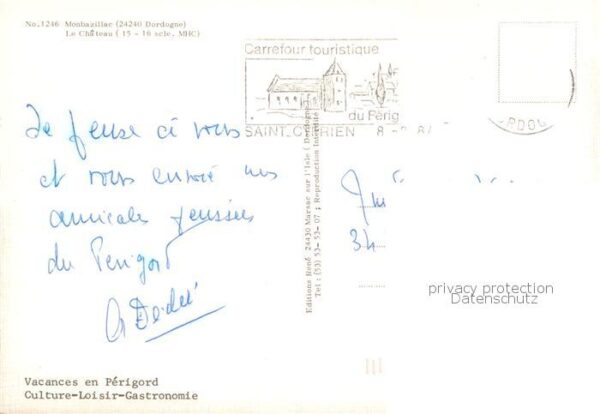 No.1246 Monbazillac (24240 Dordogne)
Le Château ( 15 - 16 scle. MHC)
Carrefour touristique
du Périg
SAINT-CYPRIEN
Je pense à vous
et vous envoie mes
amicales pensées
du Perigord
Editions René 24430 Marsac sur l'Isle ( Dordogne )
Tel : (53) 53- 53- 07 ; Reproduction Interdite
34
privacy protection
Datenschutz
Vacances en Périgord
Culture-Loisir-Gastronomie